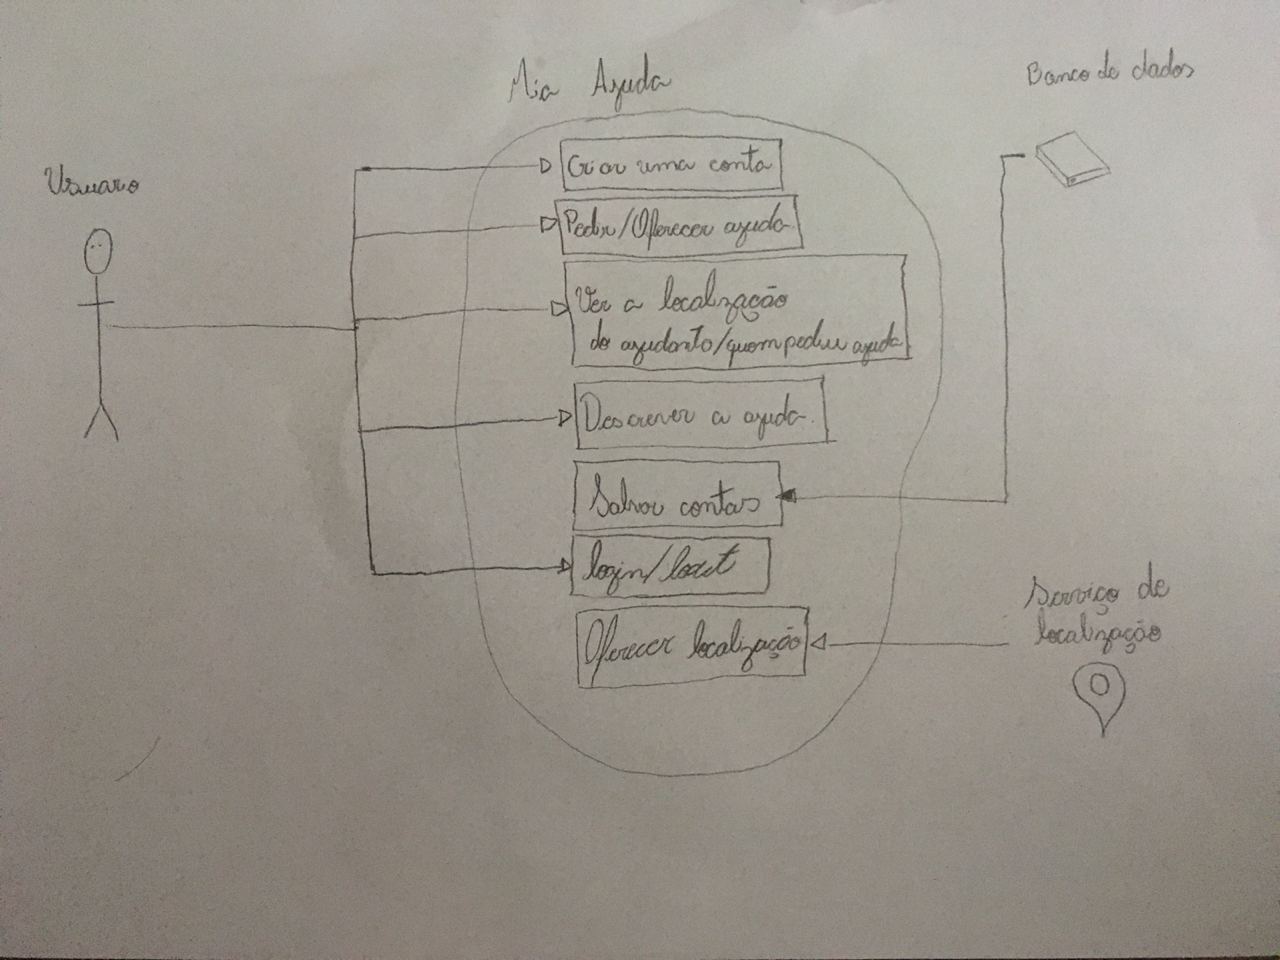 Mia Ayuda
Banco de dados
Usuaro
Criar uma conta
Pedir/Oferecer ayuda.
Ver a localização
do ayudante/quem pediu ayuda
Descrever a ayuda.
Salvar contas
login/
Oferecer localização
Serviço de
localização